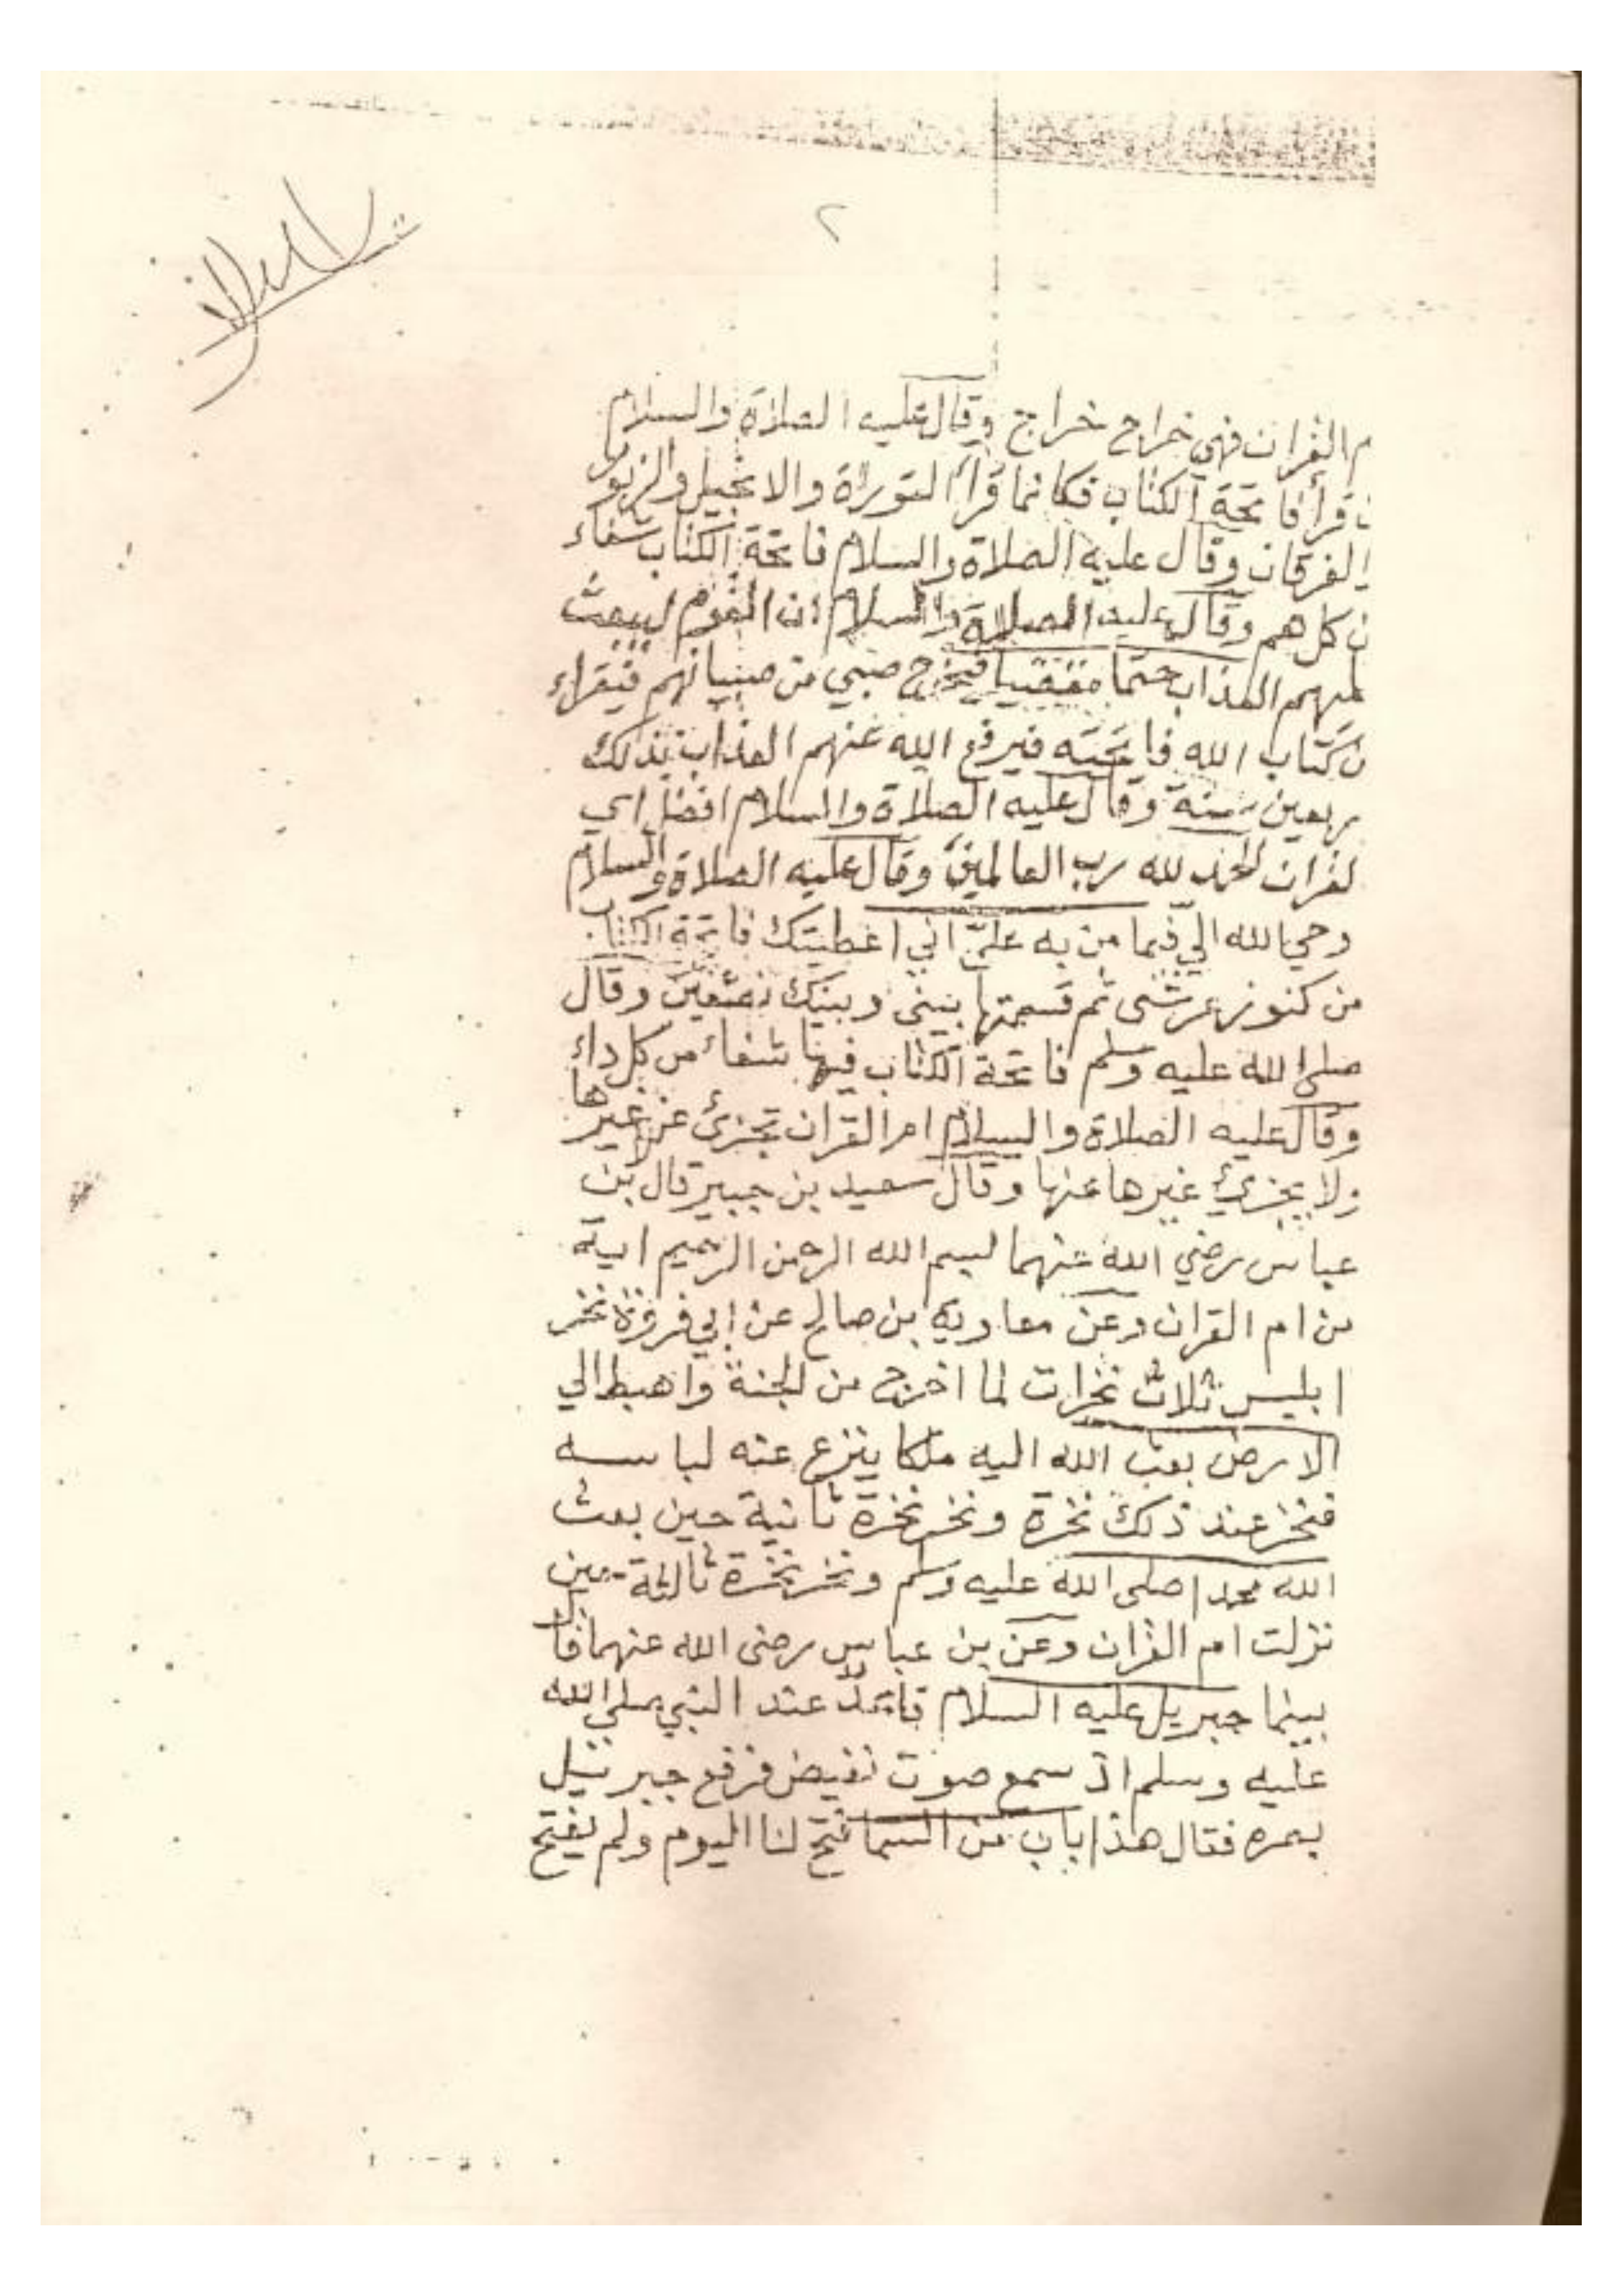 ٢
م القران فهي خراج خراج وقال عليه الصلاة والسلام
ن قرأ فاتحة الكتاب فكانما قرأ التوراة والانجيل والزبور
الفرقان وقال عليه الصلاة والسلام فاتحة الكتاب شفاء
ن كل هم وقال عليه الصلاة والسلام ان القوم ليبعث
العذاب حتما مقضيا فيخرج صبي من صبيانهم فيقراء
كتاب الله فاتحته فيرفع الله عنهم العذاب بذلك
ربعين سنة وقال عليه الصلاة والسلام افضل اي
لقران الحمد لله رب العالمين وقال عليه الصلاة والسلام
وحي الله الي فيما من به علي اني اعطيتك فاتحة الكتاب
من كنوز عرشى ثم قسمتها بيني وبينك نصفين وقال
صلى الله عليه وسلم فاتحة الكتاب فيها شفاء من كل داء
وقال عليه الصلاة والسلام ام القران تجزئ عن غيرها
ولا يجزئ غيرها عنها وقال سعيد بن جبير قال بن
عباس رضي الله عنهما لبسم الله الرحمن الرحيم اية
من ام القران وعن معاوية بن صالح عن ابي فروة نخر
ابليس ثلاث نخرات لما اخرج من الجنة واهبط الي
الارض بعث الله اليه ملكا ينزع عنه لباسه
فنخر عند ذلك نخرة ونخر نخرة ثانية حين بعث
الله محمدا صلى الله عليه وسلم ونخر نخرة ثالثة حين
نزلت ام القران وعن بن عباس رضى الله عنهما قال
بينما جبريل عليه السلام قاعد عند النبي صلى الله
عليه وسلم اذ سمع صوت نقيض فرفع جبرئيل
بصره فقال هذا باب من السما فتح لنا اليوم ولم يفتح